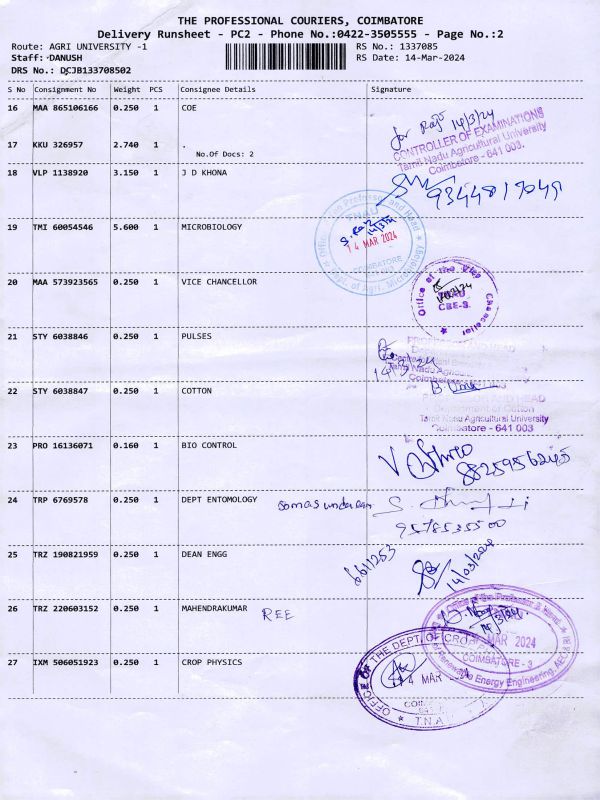 THE PROFESSIONAL COURIERS, COIMBATORE
Delivery Runsheet - PC2 - Phone No.:0422-3505555 - Page No.:2
Route: AGRI UNIVERSITY -1
RS No.: 1337085
Staff: DANUSH
RS Date: 14-Mar-2024
DRS No.: DCJB133708502
S No Consignment No Weight PCS Consignee Details Signature
16 MAA 865106166 0.250 1 COE
for 14/3/24
CONTROLLER OF EXAMINATIONS
Tamil Nadu Agricultural University
Coimbatore - 641 003.
17 KKU 326957 2.740 1 .
No.Of Docs: 2
18 VLP 1138920 3.150 1 J D KHONA
9344817049
19 TMI 60054546 5.600 1 MICROBIOLOGY
TNAU
14 MAR 2024
COIMBATORE
20 MAA 573923565 0.250 1 VICE CHANCELLOR
Office of the Vice Chancellor
TNAU
CBE-3.
21 STY 6038846 0.250 1 PULSES
14/3/24
22 STY 6038847 0.250 1 COTTON
Department of Cotton
Tamil Nadu Agricultural University
Coimbatore - 641 003
23 PRO 16136071 0.160 1 BIO CONTROL
8825956245
24 TRP 6769578 0.250 1 DEPT ENTOMOLOGY
Somasundaram
9578535500
25 TRZ 190821959 0.250 1 DEAN ENGG
6611253
14/03/2024
26 TRZ 220603152 0.250 1 MAHENDRAKUMAR REE
Office of the Professor & Head
MAR 2024
COIMBATORE - 3
of Renewable Energy Engineering, AEC & RI
27 IXM 506051923 0.250 1 CROP PHYSICS
OFFICE OF THE DEPT. OF CROP
14 MAR
T.N.A